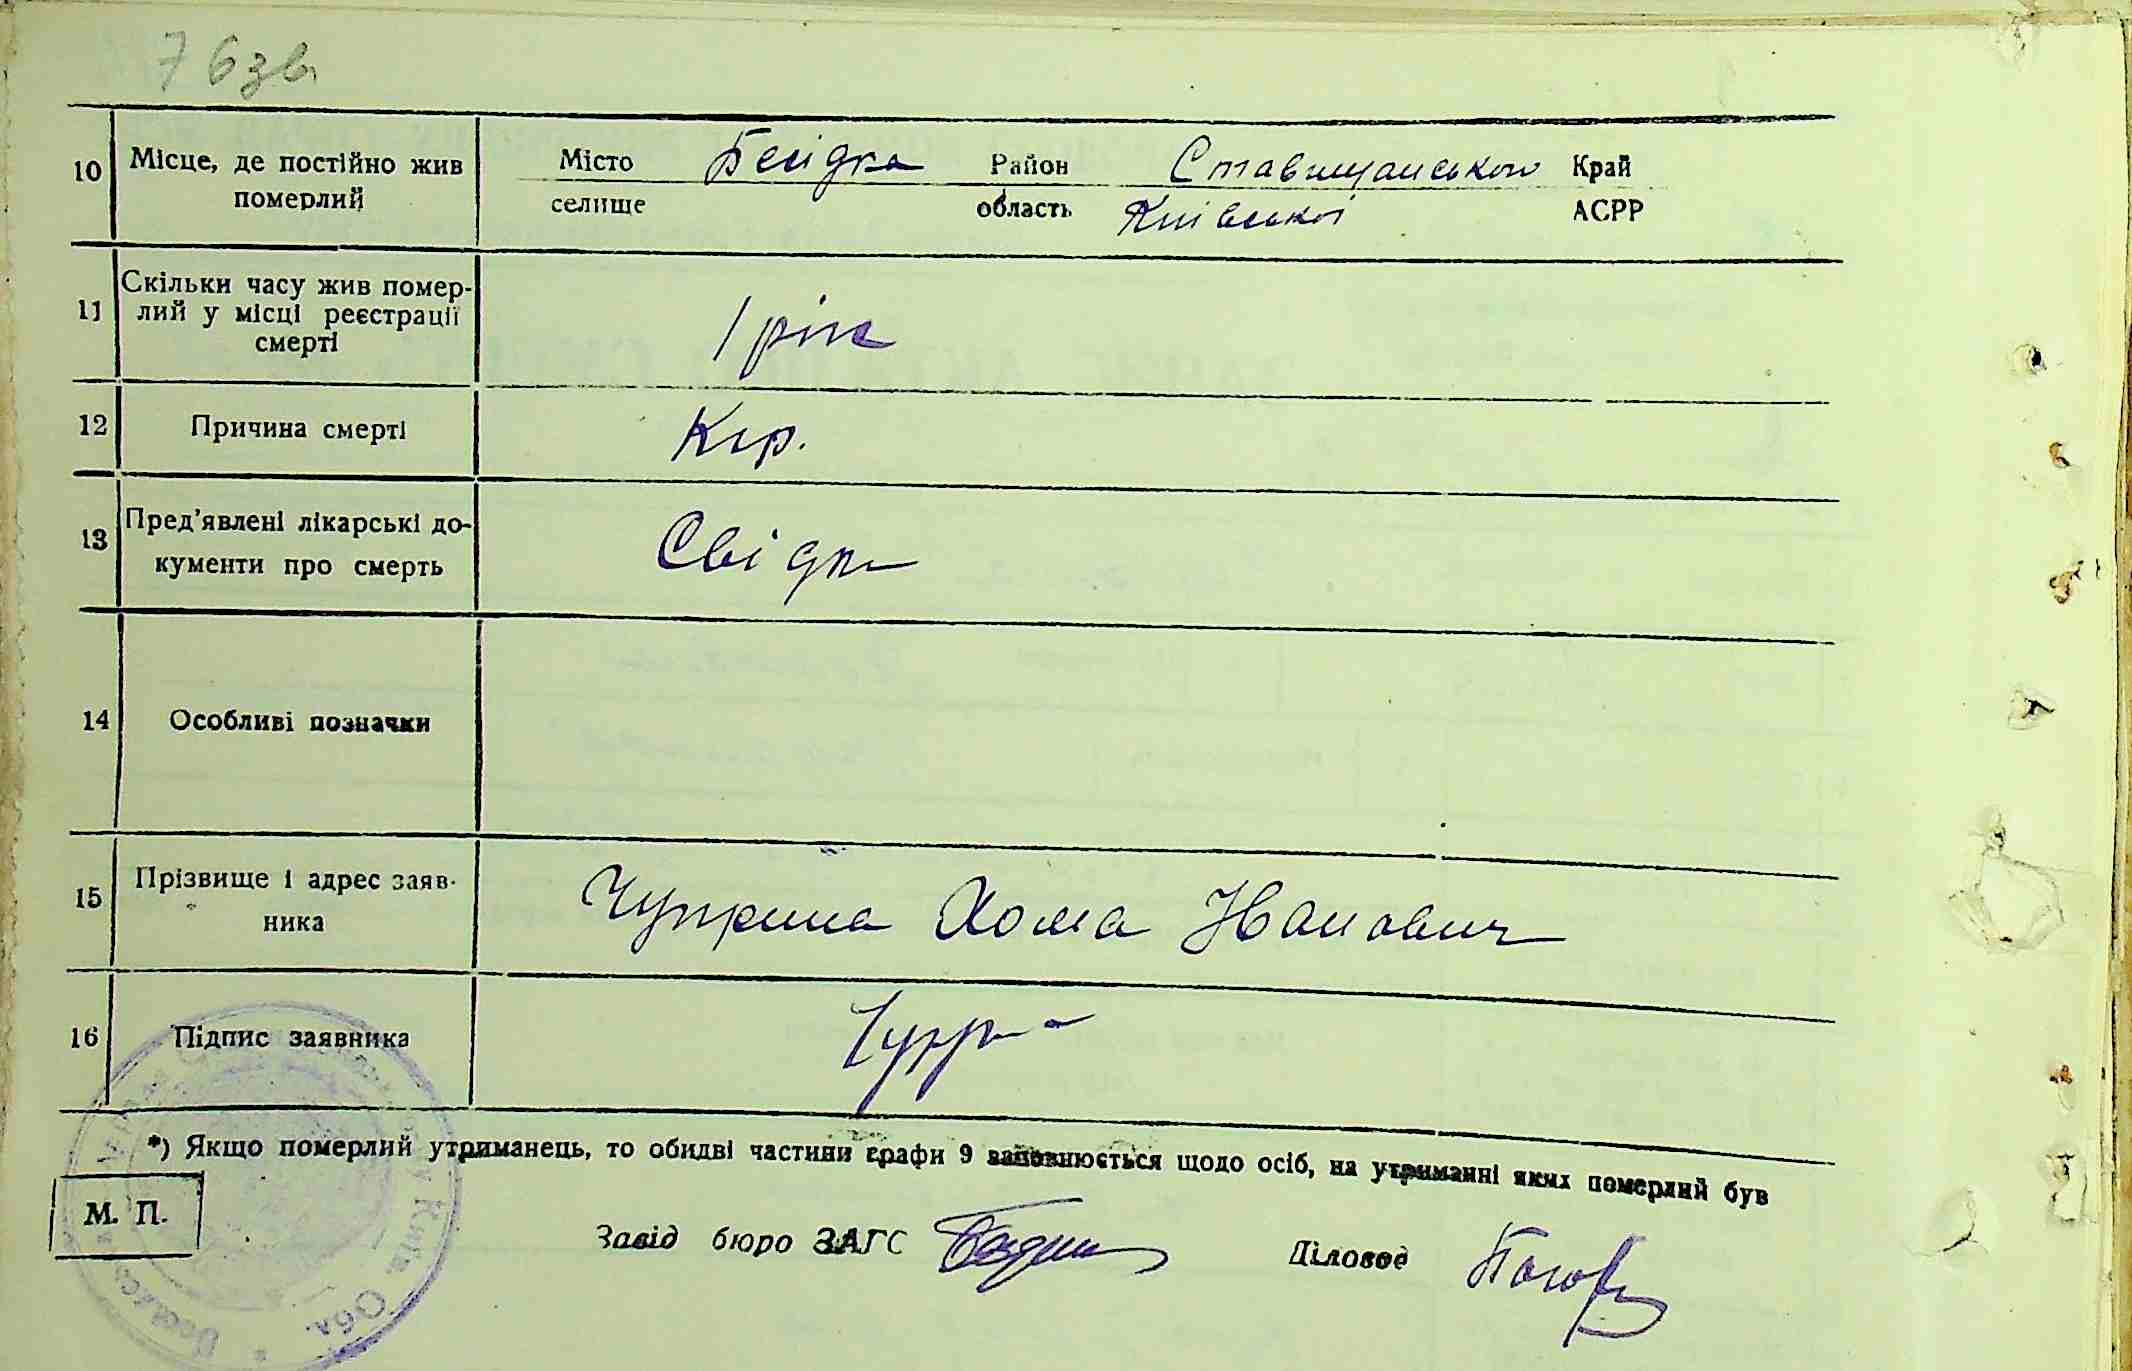 76зв
10 Місце, де постійно жив померлий Місто Бесідка Район Ставищанського Край
селище область Київської АСРР
11 Скільки часу жив помер-
лий у місці реєстрації
смерті 1 рік
12 Причина смерті Кір.
13 Пред'явлені лікарські до-
кументи про смерть Свідки
14 Особливі позначки
15 Прізвище і адрес заяв-
ника Чуприна Хома Іванович
16 Підпис заявника
*) Якщо померлий утриманець, то обидві частини графи 9 заповнюється щодо осіб, на утриманні яких померлий був
М. П.
Завід бюро ЗАГС Діловод